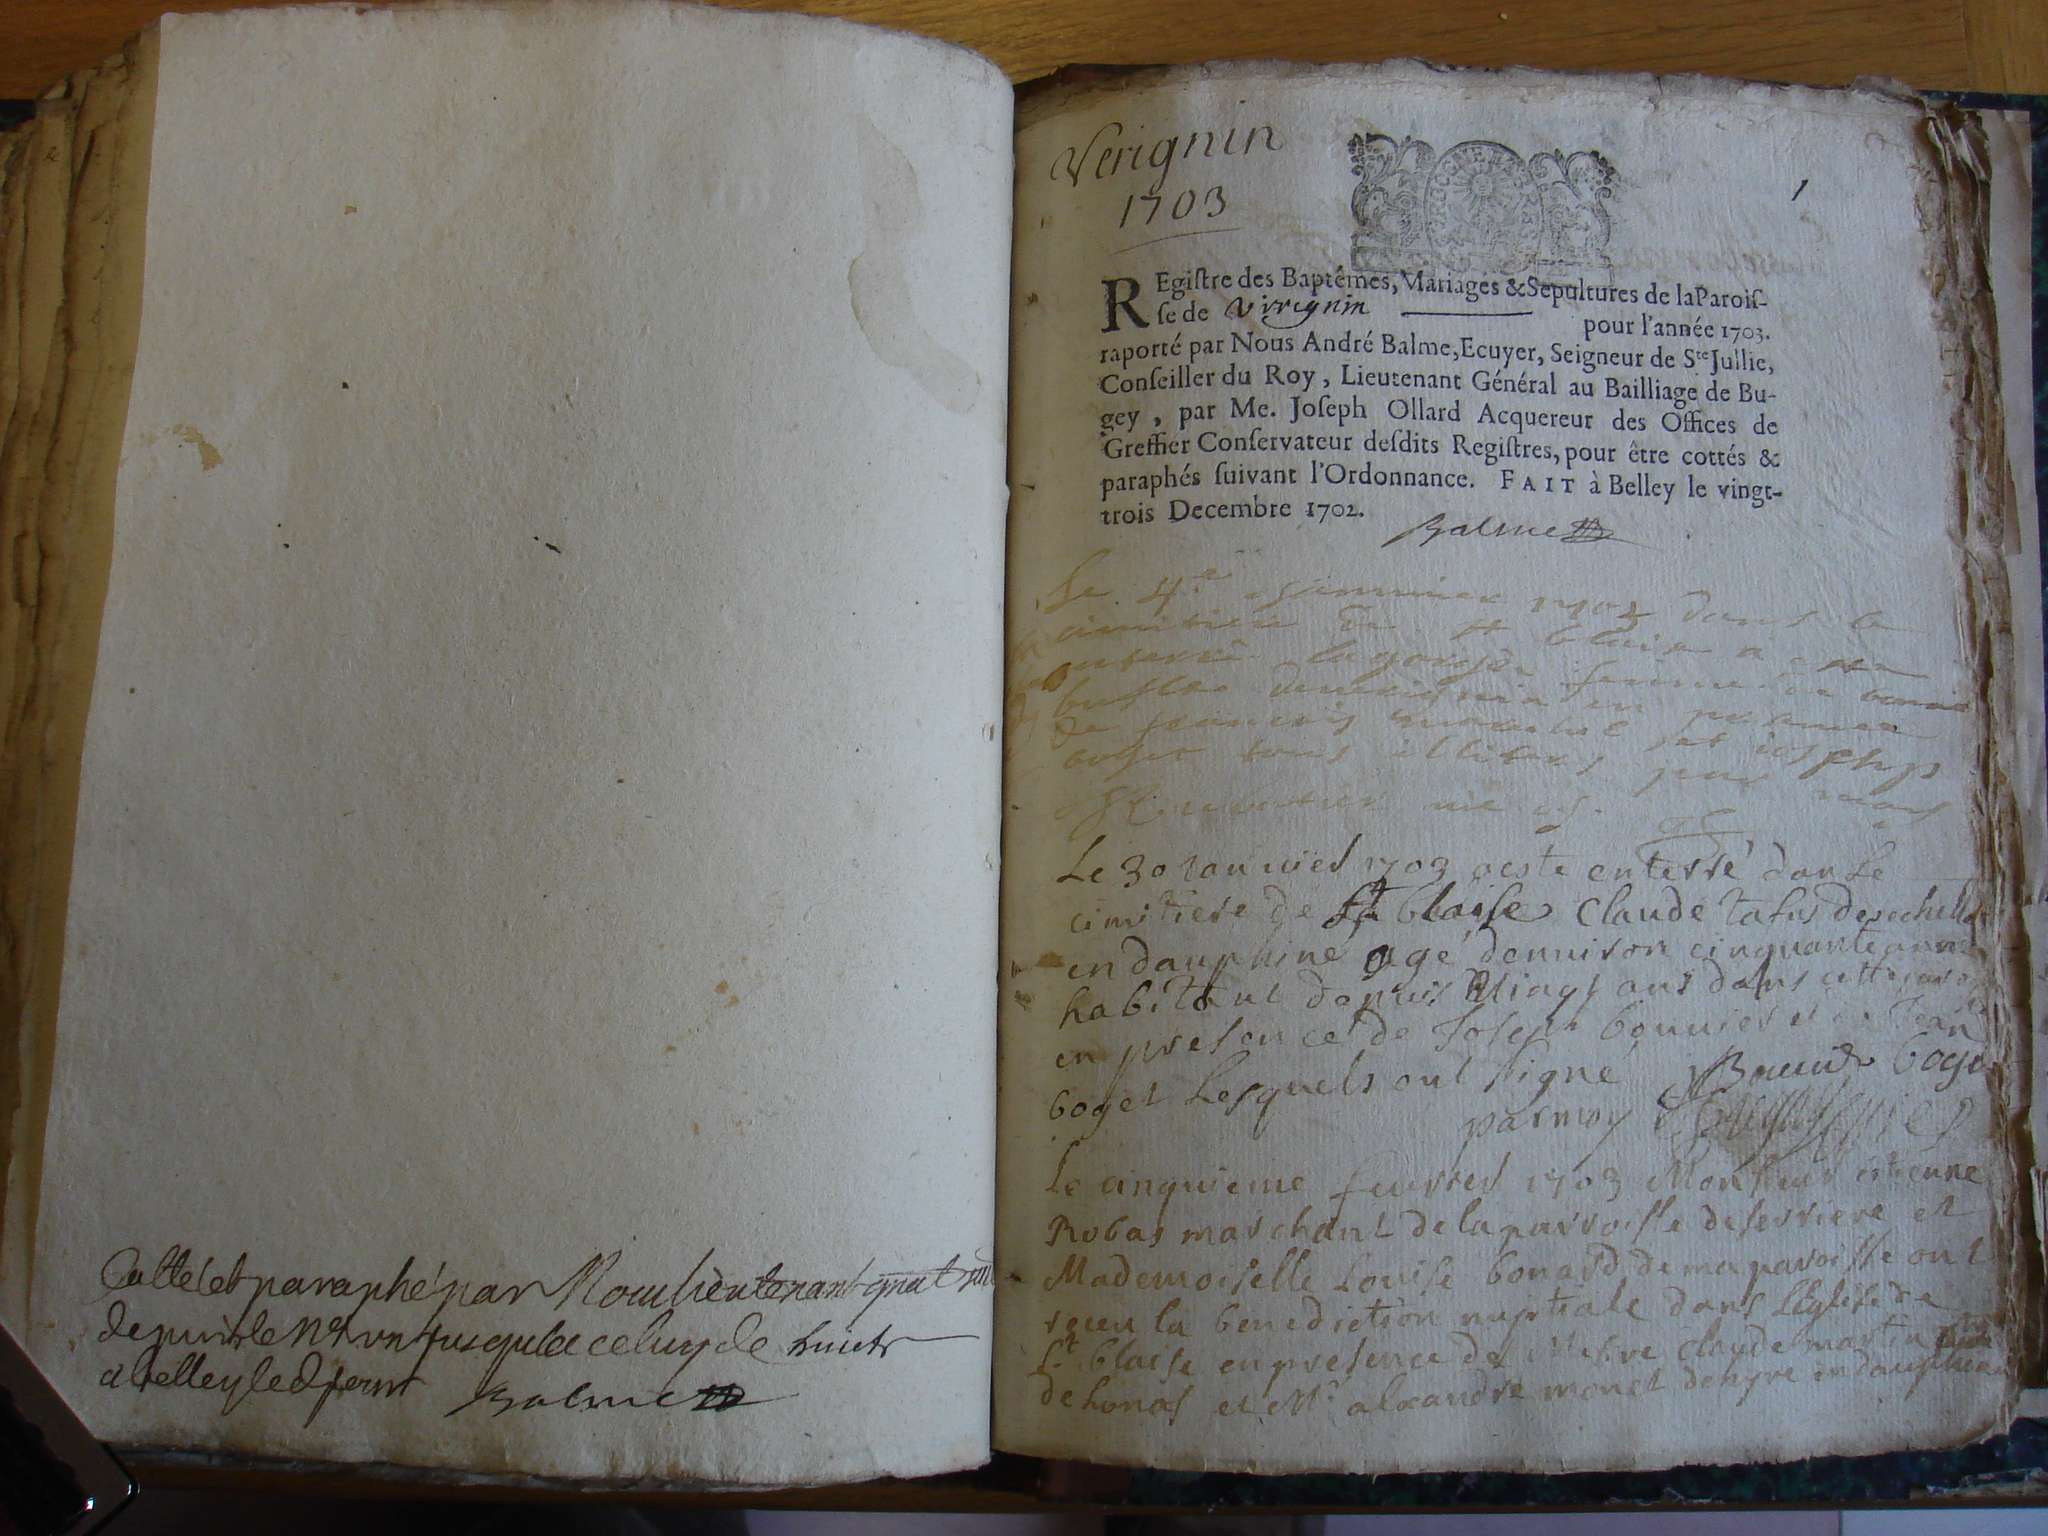 Cotté et paraphé par Nous lieutenant gnal
depuis le No un jusques a celuy de huict
a belley led jour Balme
Verignin
1703
1
REgiſtre des Baptêmes, Mariages & Sepultures de la Paroiſ-
ſe de Virignin pour l'année 1703.
raporté par Nous André Balme, Ecuyer, Seigneur de Ste Jullie,
Conſeiller du Roy, Lieutenant Général au Bailliage de Bu-
gey, par Me. Joſeph Ollard Acquereur des Offices de
Greffier Conſervateur deſdits Regiſtres, pour être cottés &
paraphés ſuivant l'Ordonnance. FAIT à Belley le vingt-
trois Decembre 1702.
Balme
Le 4e 1703 dans le
cimitiere de st blaise a este
enterré femme de
de francois et joseph
boget tous illiteres par moy
Le 30 Januier 1703 a este enterré dans le
cimitiere de st blaise Claude
en dauphine agé denuiron cinquante ann
habitant depuis ans dans cette
en presence de Joseph bonnier et de Jean
boget Lesquels ont signé boget
par moy
Le cinquieme feurier 1703 Monsieur estienne
Robas marchant de la parroisse de serriere et
Mademoiselle Louise bonard de ma paroisse ont
receu la benediction nuptiale dans l'Eglise de
St blaise en presence de claude martin
de et Mr alexandre monet en dauphine